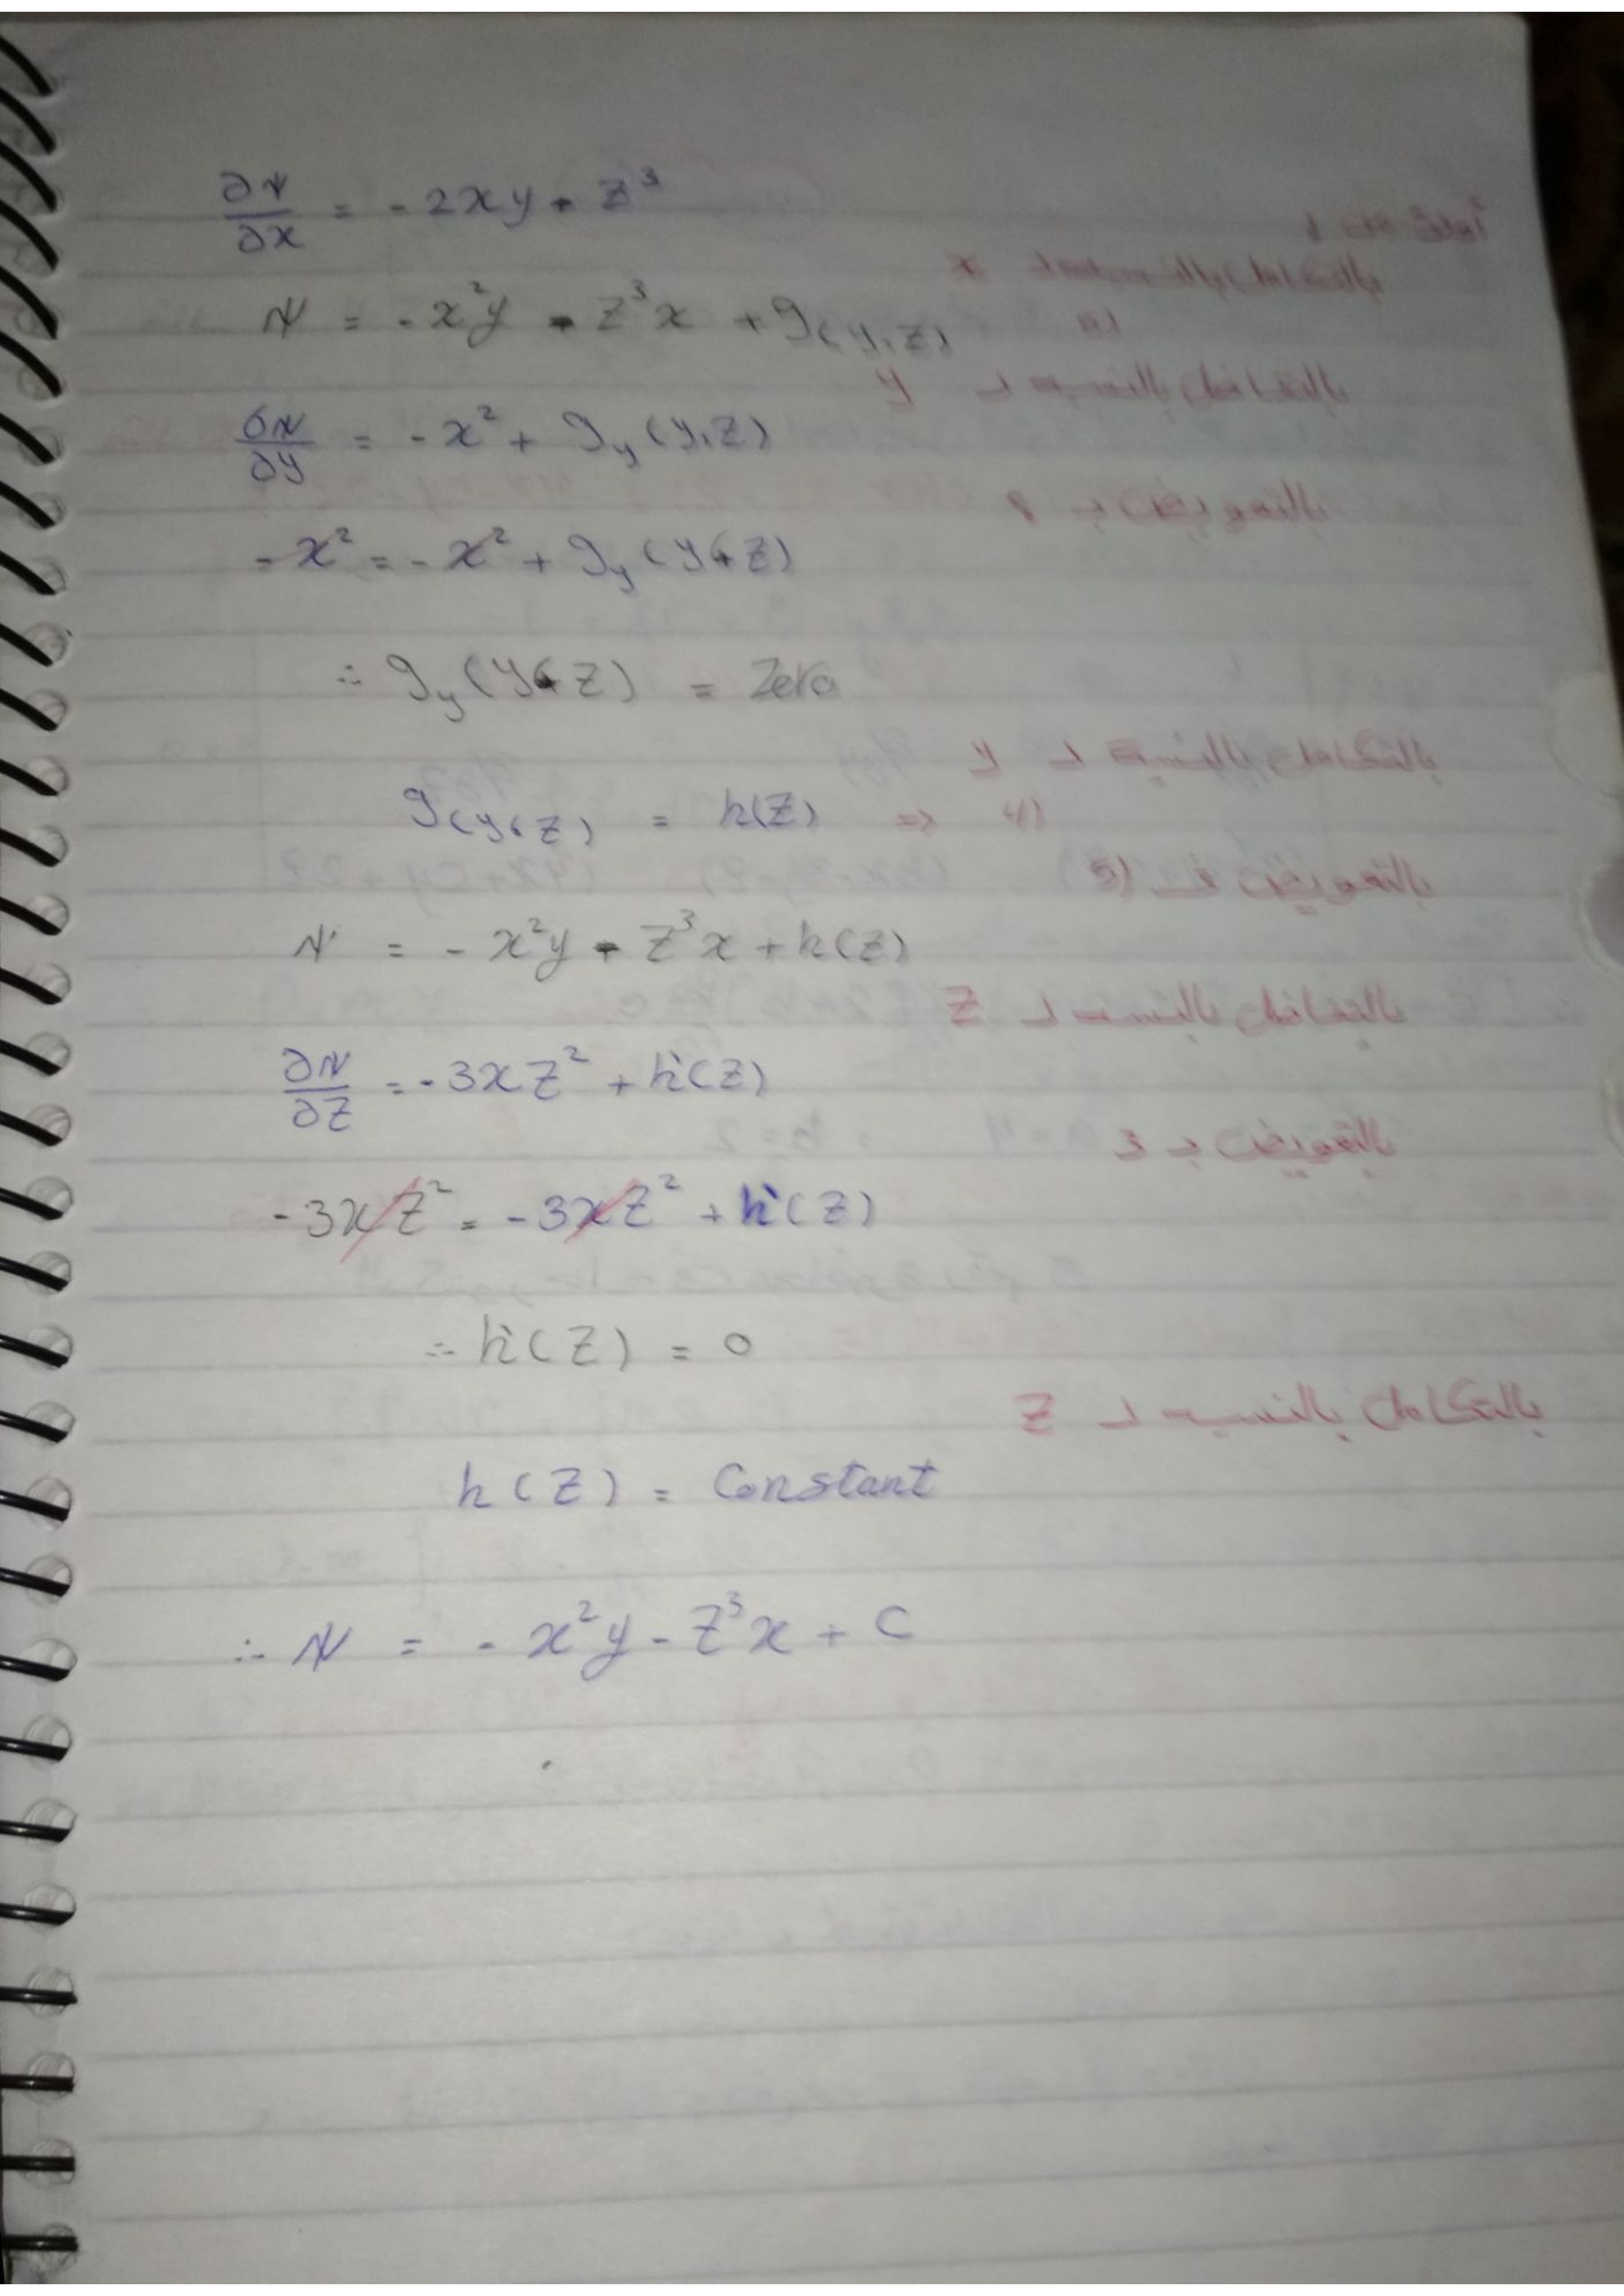 ∂N/∂x = - 2xy - z³
بالتكامل بالنسبه لـ x
N = - x²y - z³x + g(y,z)
بالتفاضل بالنسبه لـ y
∂N/∂y = - x² + g_y (y,z)
بالتعويض بـ 2
- x² = - x² + g_y (y,z)
∴ g_y (y,z) = Zero
بالتكامل بالنسبة لـ y
g(y,z) = h(z) ⇒ 4)
بالتعويض فـ (5
N = - x²y - z³x + h(z)
بالتفاضل بالنسبه لـ Z
∂N/∂z = - 3xz² + h'(z)
بالتعويض بـ 3
- 3xz² = - 3xz² + h'(z)
∴ h'(z) = 0
بالتكامل بالنسبه لـ Z
h(z) = Constant
∴ N = - x²y - z³x + C